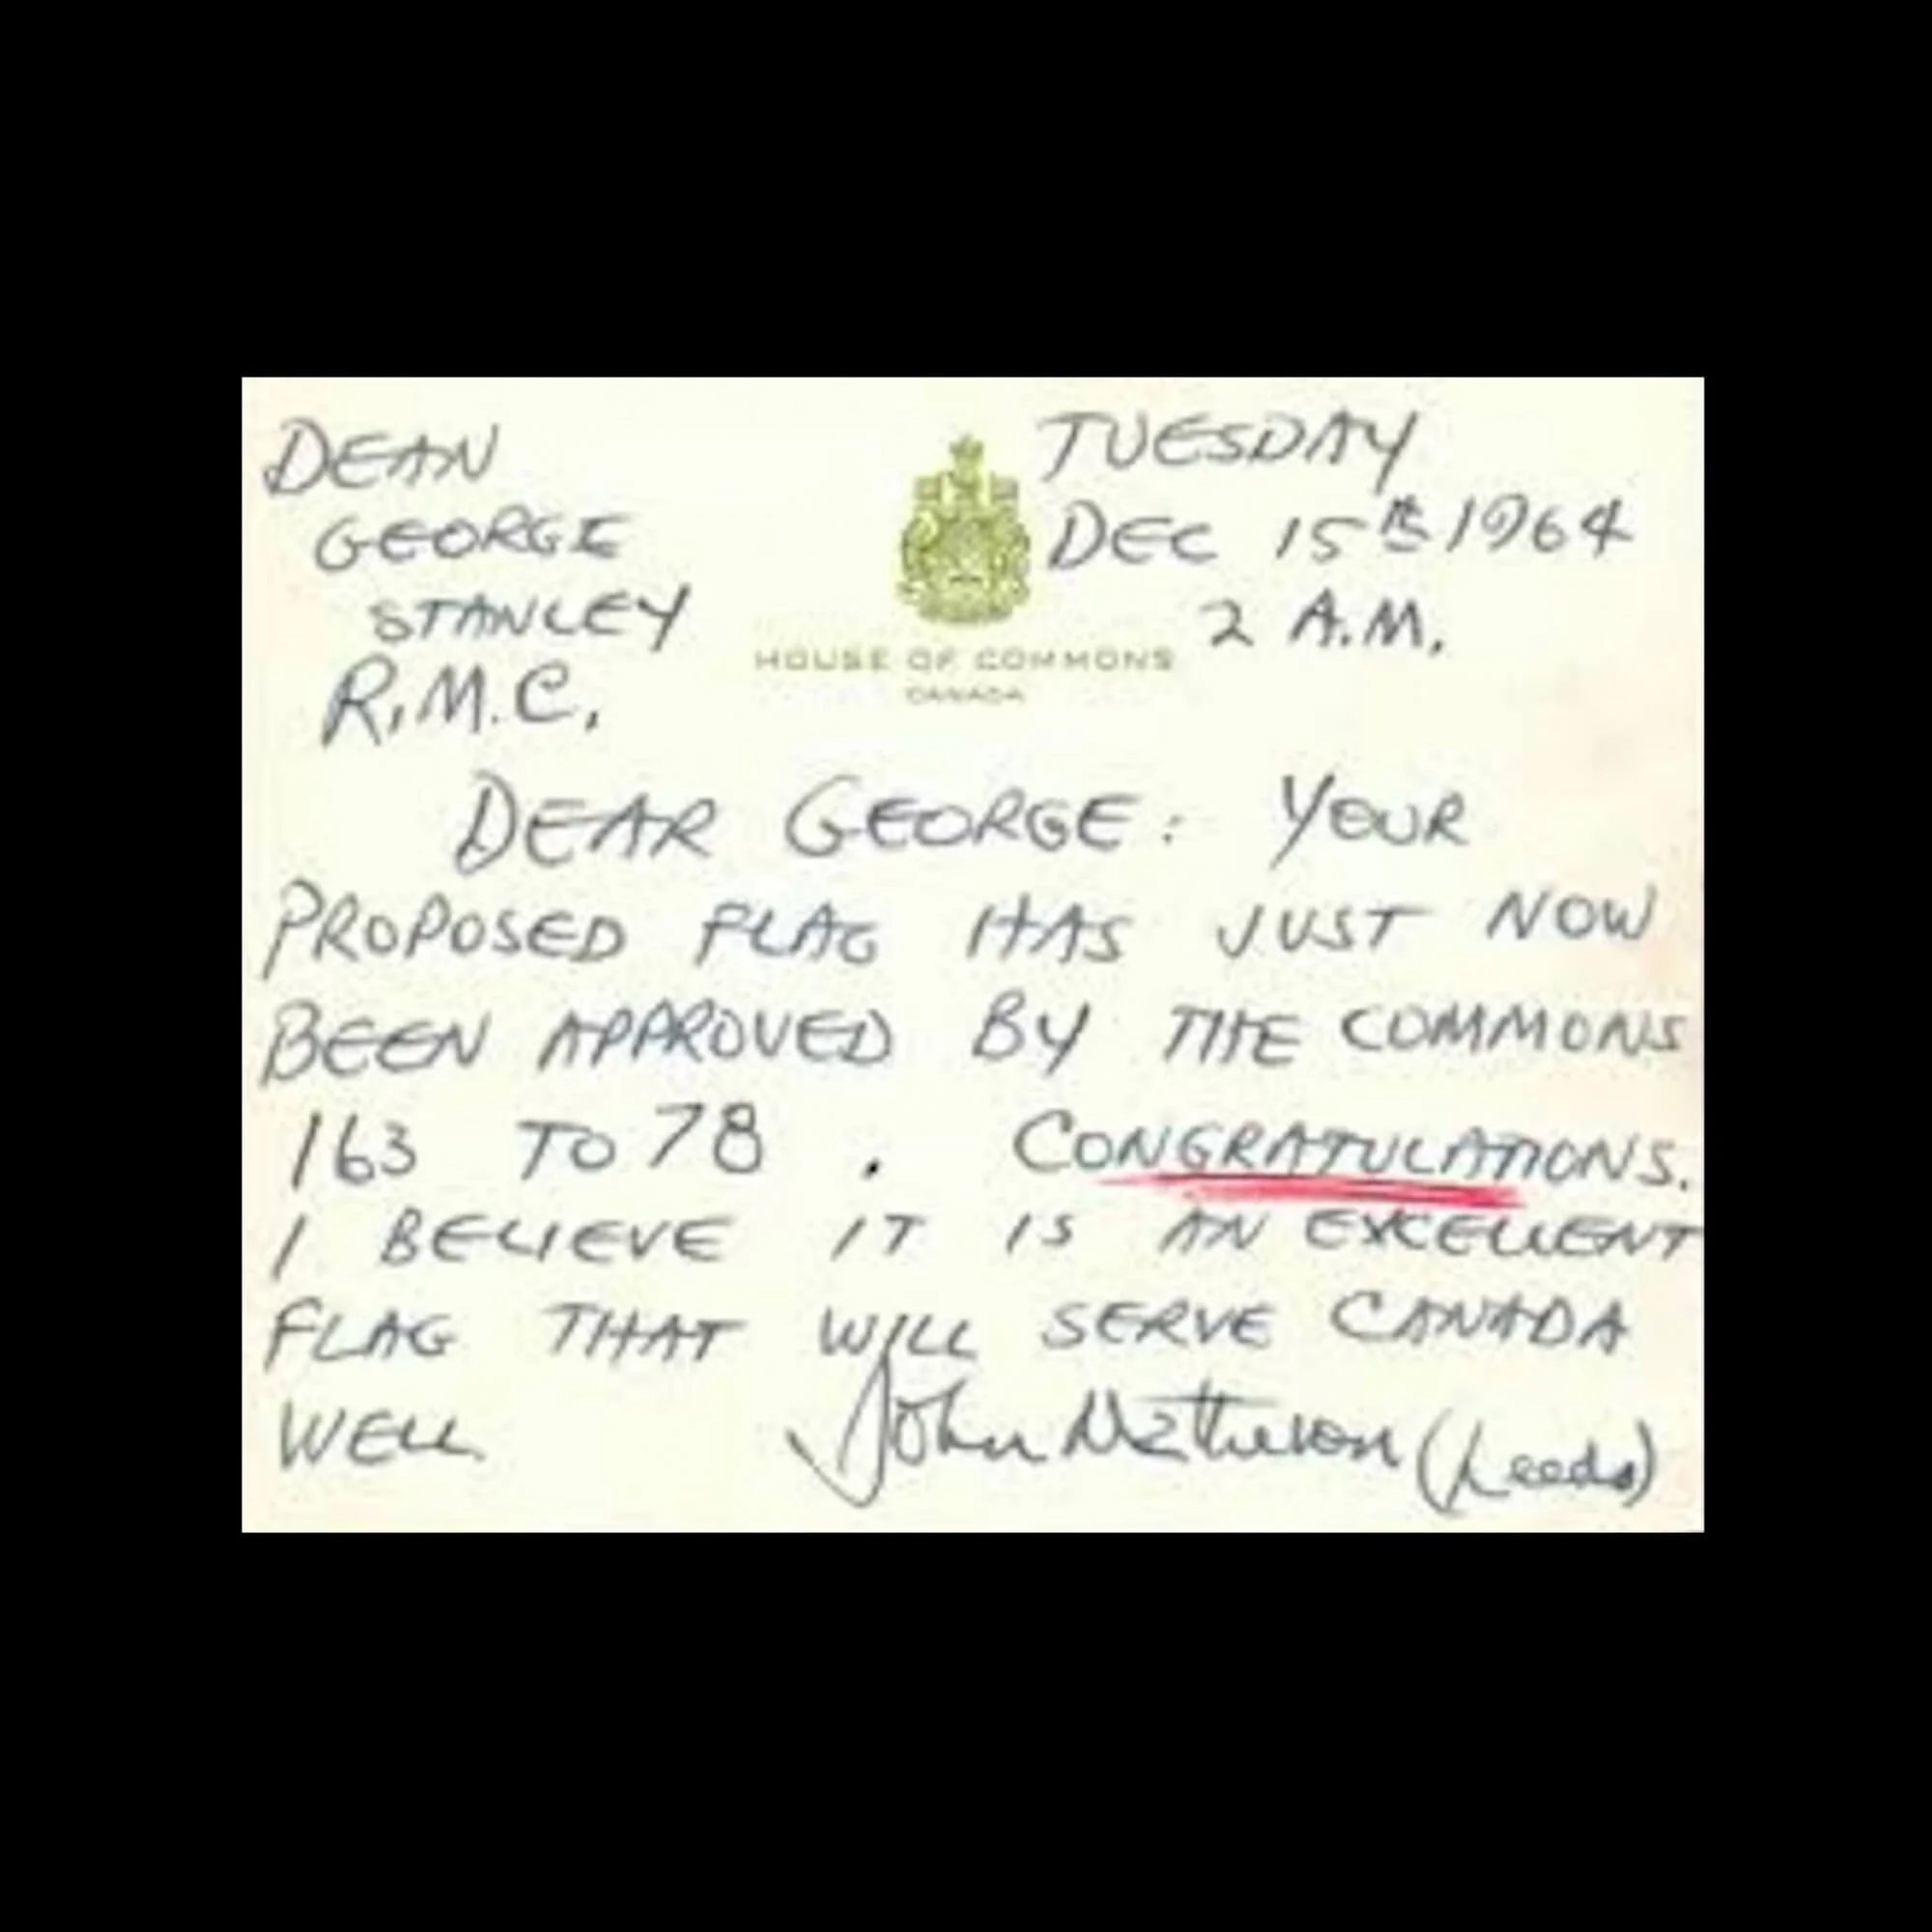 DEAN
GEORGE
STANLEY
R.M.C.
TUESDAY
DEC 15th 1964
2 A.M.
HOUSE OF COMMONS
CANADA
DEAR GEORGE: YOUR
PROPOSED FLAG HAS JUST NOW
BEEN APPROVED BY THE COMMONS
163 TO 78 . CONGRATULATIONS.
I BELIEVE IT IS AN EXCELLENT
FLAG THAT WILL SERVE CANADA
WELL. John Matheson (Leeds)